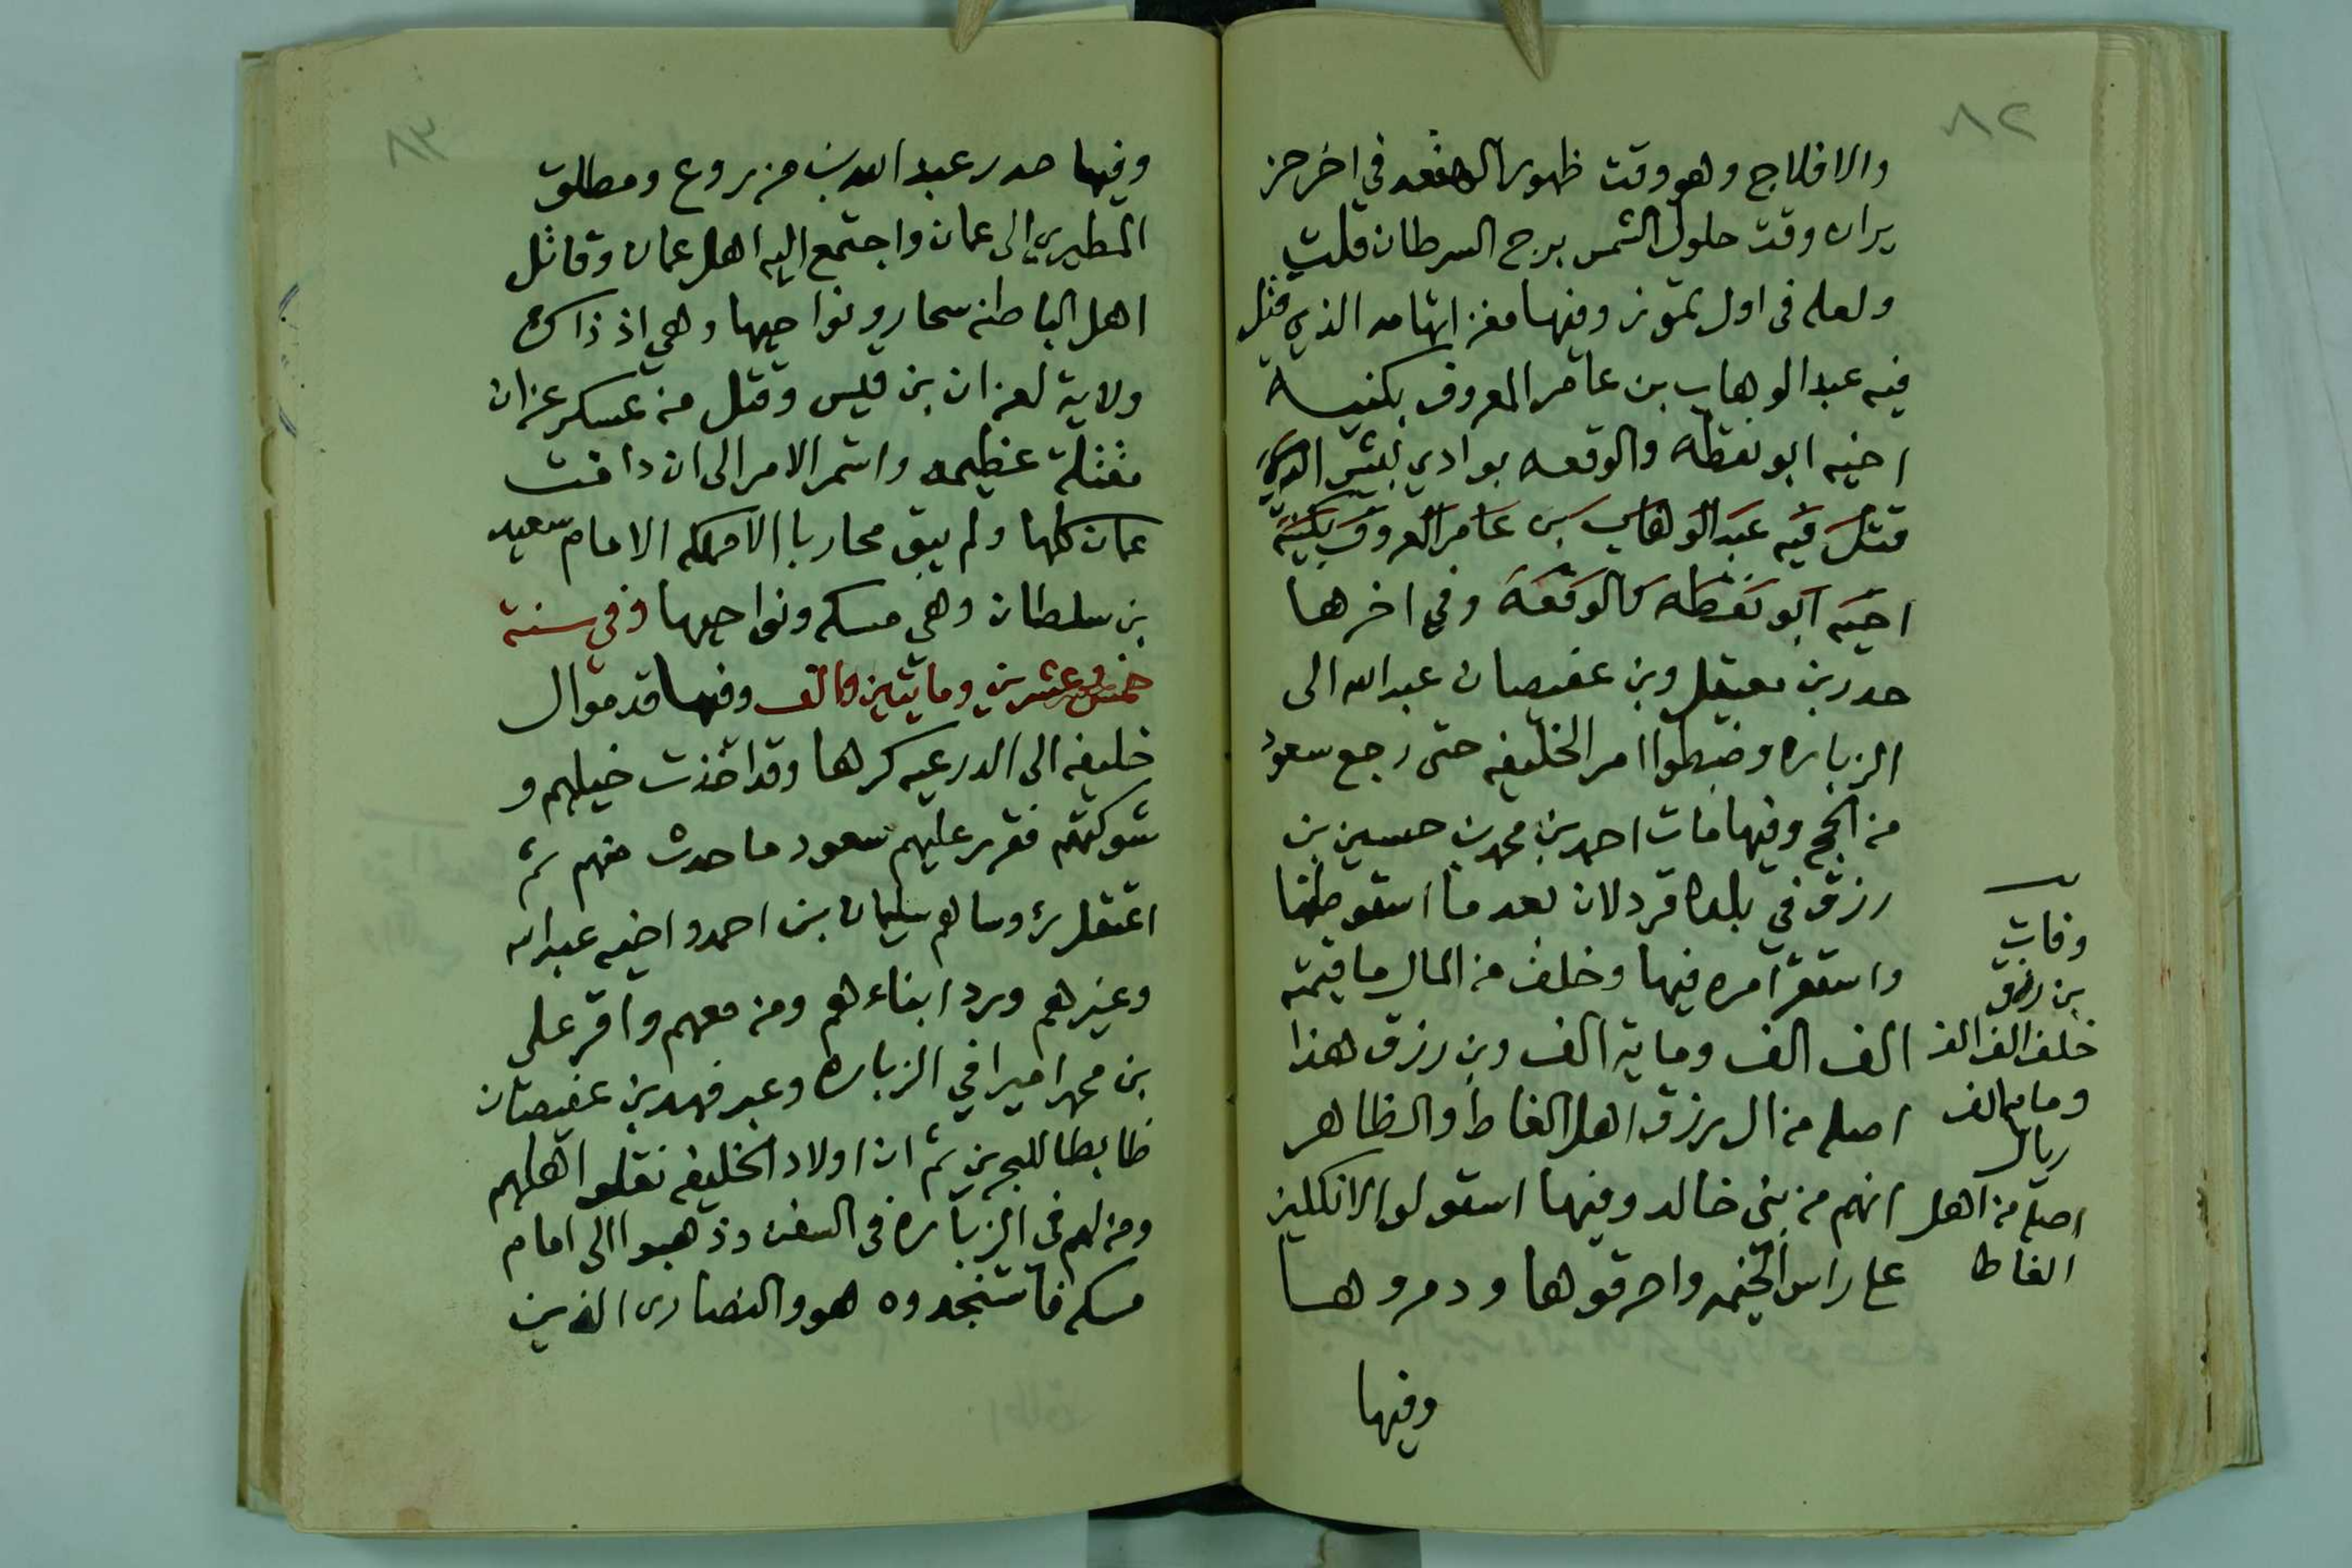 ٨٢
والافلاج وهو وقت ظهور الهقعه في اخر حز
يران وقت حلول الشمس برج السرطان قلت
ولعله في اول تموز وفيها مغزا تهامه الذي قتل
فيه عبد الوهاب بن عامر المعروف بكنية
اخيه ابو نقطه والوقعه بوادي بيش الذي
قتل فيه عبد الوهاب بن عامر المعروف بكنية
اخيه ابو نقطه كالوقعه وفي اخرها
حدر بن معيقل وبن عفيصان عبد الله الى
الزباره وضبطوا امر الخليفه حتى رجع سعود
من الحج وفيها مات احمد بن محمد بن حسين بن
رزق في بلده قردلان بعد ما استوطنها
واستقر امره فيها وخلف من المال ما قيمته
الف الف وماية الف وبن رزق هذا
اصله من ال رزق اهل الغاط والظاهر
انهم من بني خالد وفيها استولوا الانكليز
على راس الخيمه واحرقوها ودمروها
وفيها
وفات
بن رزق
خلف الف الف
وماية الف
ريال
اصله من اهل
الغاط
٨٣
وفيها حدر عبد الله بن مزروع ومطلق
المطيري الى عمان واجتمع اليه اهل عمان وقاتل
اهل الباطنه سحار ونواحيها وهي اذ ذاك
ولاية لعزان بن قيس وقتل من عسكر عزان
مقتلة عظيمه واستمر الامر الى ان دانت
عمان كلها ولم يبق محاربا الا مملكه الامام سعيد
بن سلطان وهي مسكه ونواحيها وفي سنة
خمس وعشرين ومايتين والف وفيها قدموا ال
خليفه الى الدرعيه كرها وقد اخذت خيلهم و
شوكتهم فقرر عليهم سعود ما حدث منهم ثم
اعتقل رؤوساهم سليمان بن احمد واخيه عبد الله
وغيرهم ورد ابناءهم ومن معهم واقر علي
بن محمد اميرا في الزباره وعبد فهد بن عفيصان
ظابطا للبحرين ثم ان اولاد الخليفه نقلوا اهلهم
ومن لهم في الزباره في السفن وذهبوا الى امام
مسكه فاستنجدوه هو والنصارى الذين